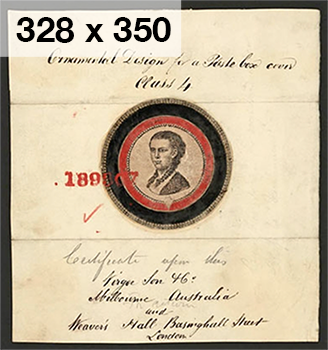 328 x 350
Ornamental Design for a Paste box cover
Class 4
189307
Certificate upon this
Virgoe Son & Co
Melbourne Australia
and
Weavers Hall Basinghall Street
London